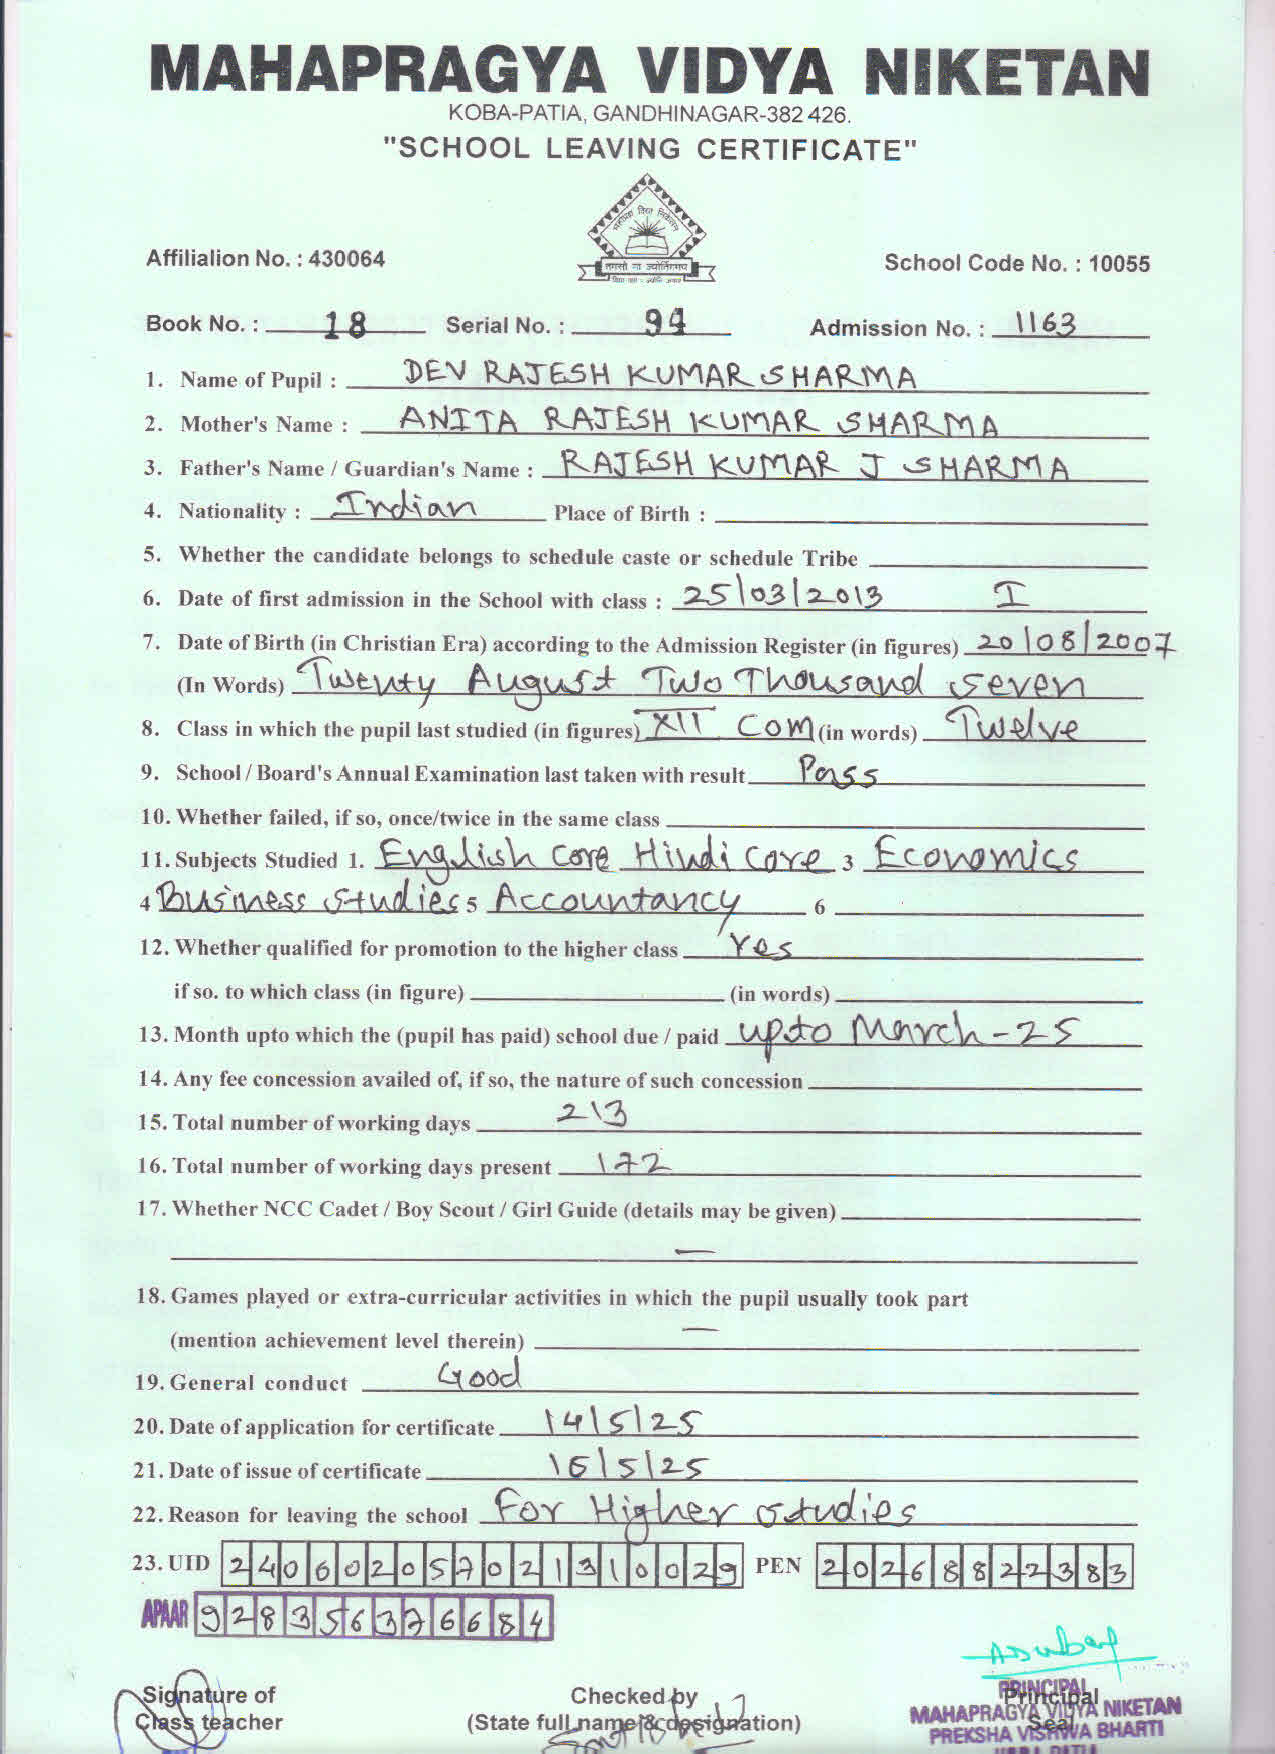 MAHAPRAGYA VIDYA NIKETAN
KOBA-PATIA, GANDHINAGAR-382 426.
"SCHOOL LEAVING CERTIFICATE"
तमसो मा ज्योतिर्गमय
Affilialion No. : 430064 School Code No. : 10055
Book No. : 18 Serial No. : 94 Admission No. : 1163
1. Name of Pupil : DEV RAJESH KUMAR SHARMA
2. Mother's Name : ANITA RAJESH KUMAR SHARMA
3. Father's Name / Guardian's Name : RAJESH KUMAR J SHARMA
4. Nationality : Indian Place of Birth :
5. Whether the candidate belongs to schedule caste or schedule Tribe
6. Date of first admission in the School with class : 25/03/2013 I
7. Date of Birth (in Christian Era) according to the Admission Register (in figures) 20/08/2007
(In Words) Twenty August Two Thousand Seven
8. Class in which the pupil last studied (in figures) XII Com (in words) Twelve
9. School / Board's Annual Examination last taken with result Pass
10. Whether failed, if so, once/twice in the same class
11. Subjects Studied 1. English Core Hindi Core 3 Economics
4 Business Studies 5 Accountancy 6
12. Whether qualified for promotion to the higher class Yes
if so. to which class (in figure) (in words)
13. Month upto which the (pupil has paid) school due / paid upto March-25
14. Any fee concession availed of, if so, the nature of such concession
15. Total number of working days 213
16. Total number of working days present 172
17. Whether NCC Cadet / Boy Scout / Girl Guide (details may be given)
—
18. Games played or extra-curricular activities in which the pupil usually took part
(mention achievement level therein) —
19. General conduct Good
20. Date of application for certificate 14/5/25
21. Date of issue of certificate 16/5/25
22. Reason for leaving the school For Higher Studies
23. UID 240602057021310029 PEN 20268822383
APAAR 928356376684
Signature of Checked by Principal
Class teacher (State full name & designation) Seal
PRINCIPAL
MAHAPRAGYA VIDYA NIKETAN
PREKSHA VISHWA BHARTI